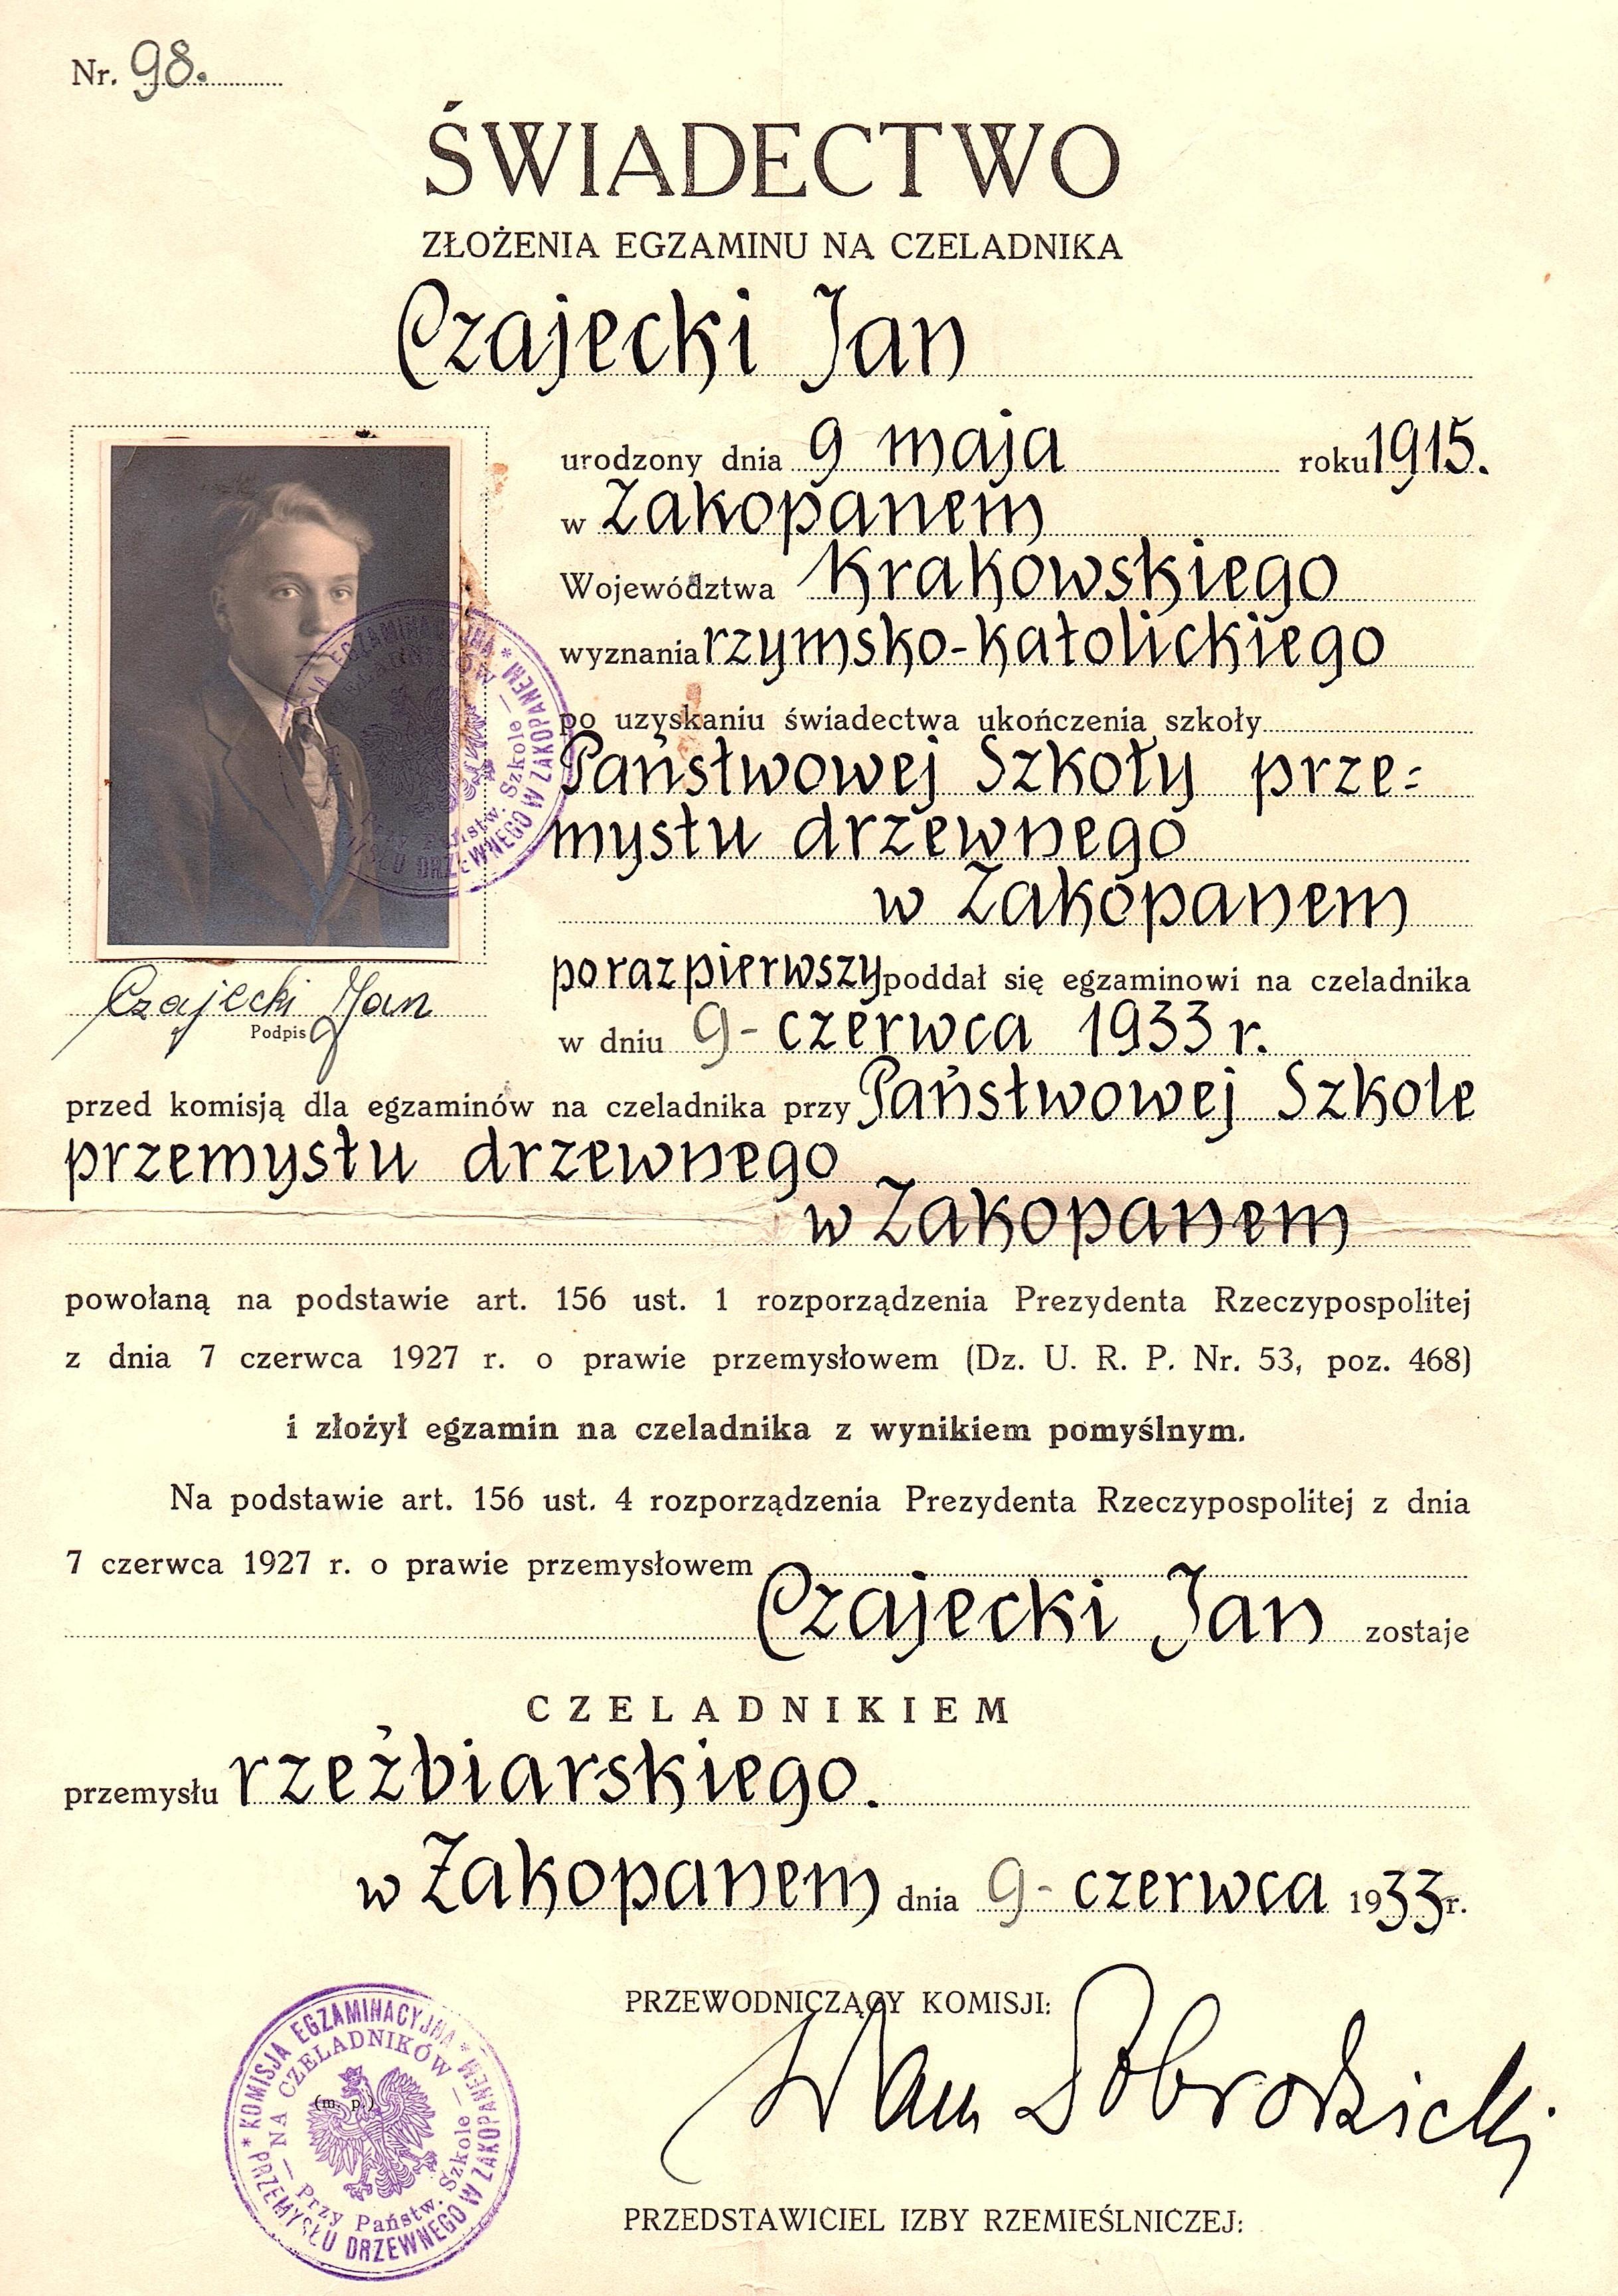 Nr. 98.
ŚWIADECTWO
ZŁOŻENIA EGZAMINU NA CZELADNIKA
Czajecki Jan
urodzony dnia 9 maja roku 1915.
w Zakopanem
Województwa Krakowskiego
wyznania rzymsko-katolickiego
po uzyskaniu świadectwa ukończenia szkoły
Państwowej Szkoły prze=
mysłu drzewnego
w Zakopanem
po raz pierwszy poddał się egzaminowi na czeladnika
Czajecki Jan
Podpis
w dniu 9- czerwca 1933 r.
przed komisją dla egzaminów na czeladnika przy Państwowej Szkole
przemysłu drzewnego
w Zakopanem
powołaną na podstawie art. 156 ust. 1 rozporządzenia Prezydenta Rzeczypospolitej
z dnia 7 czerwca 1927 r. o prawie przemysłowem (Dz. U. R. P. Nr. 53, poz. 468)
i złożył egzamin na czeladnika z wynikiem pomyślnym.
Na podstawie art. 156 ust. 4 rozporządzenia Prezydenta Rzeczypospolitej z dnia
7 czerwca 1927 r. o prawie przemysłowem
Czajecki Jan zostaje
CZELADNIKIEM
przemysłu rzeźbiarskiego.
w Zakopanem dnia 9- czerwca 1933 r.
PRZEWODNICZĄCY KOMISJI:
Dobrodzicki
* KOMISJA EGZAMINACYJNA *
NA CZELADNIKÓW
(m. p.)
— Przy Państw. Szkole —
PRZEMYSŁU DRZEWNEGO W ZAKOPANEM
PRZEDSTAWICIEL IZBY RZEMIEŚLNICZEJ: